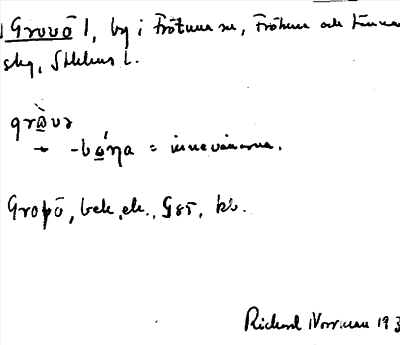 Grovö 1, by i Frötuna sn, Frötuna och Länna
skg, Sthlms l.
gròvə
→ -bǫ́ŋa = innevånarna.
Gropö, bek, ek., Gst, kb.
Richard Norrman 193